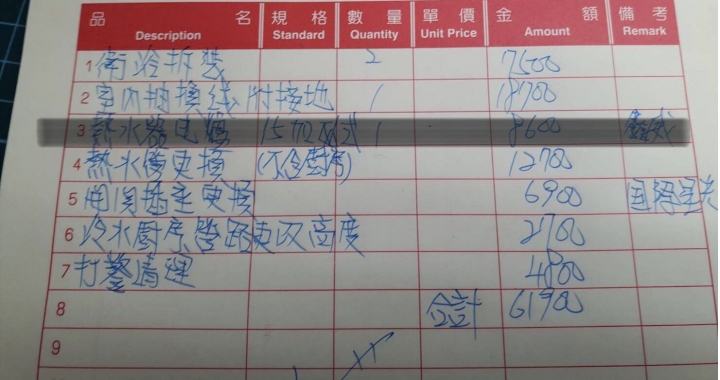 品名 規格 數量 單價 金額 備考
Description Standard Quantity Unit Price Amount Remark
1 衛冷拆裝 2 7500
2 室內抽換线 附接地 1 18700
3 熱水器电爐 15加 1 8600
4 熱水管更換 (不含廚房) 12700
5 開關插座更換 6900 国際星光
6 冷水廚房管路更改高度 2700
7 打鑿清理 4800
8 合計 61900
9